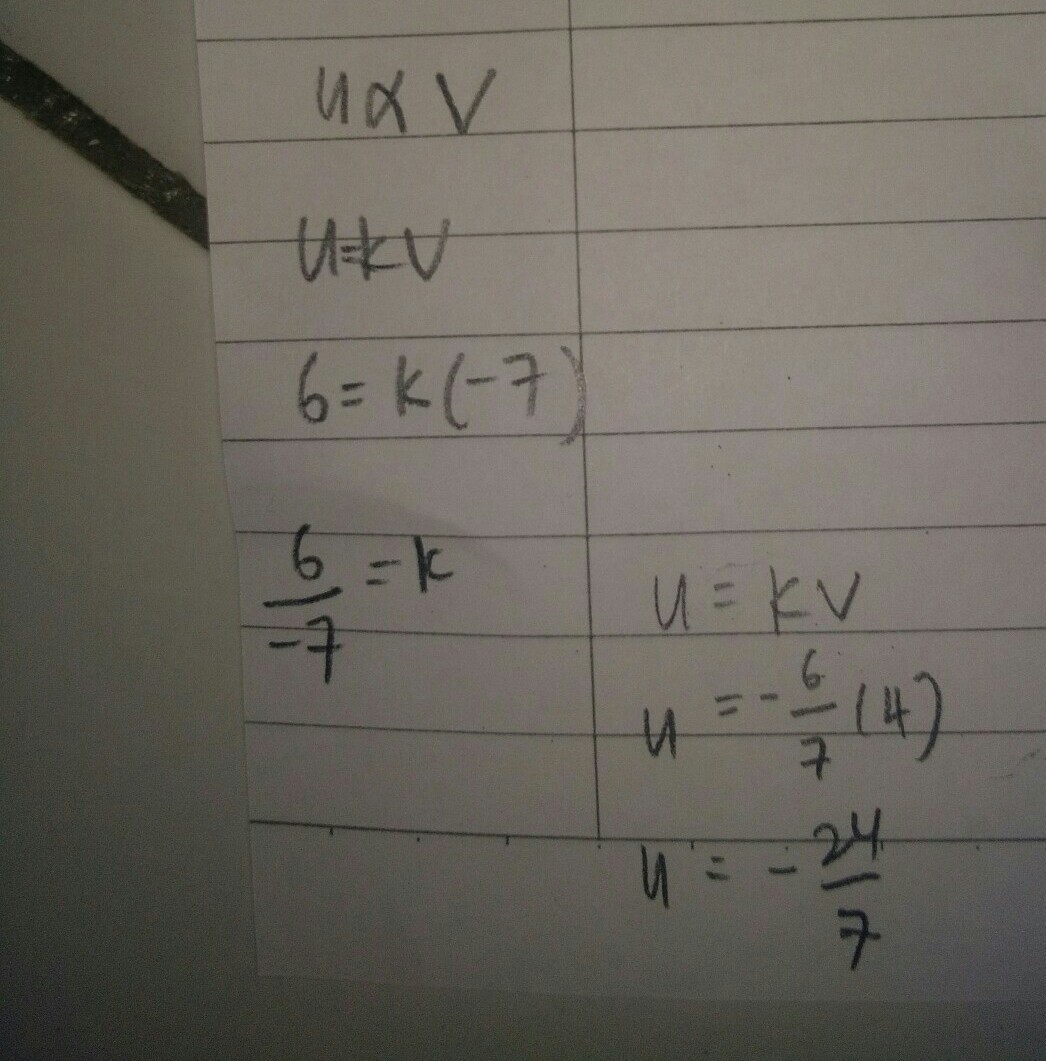 u ∝ V
u=kV
6=k(-7)
6/-7 =k
u = kv
u = -6/7 (4)
u = -24/7